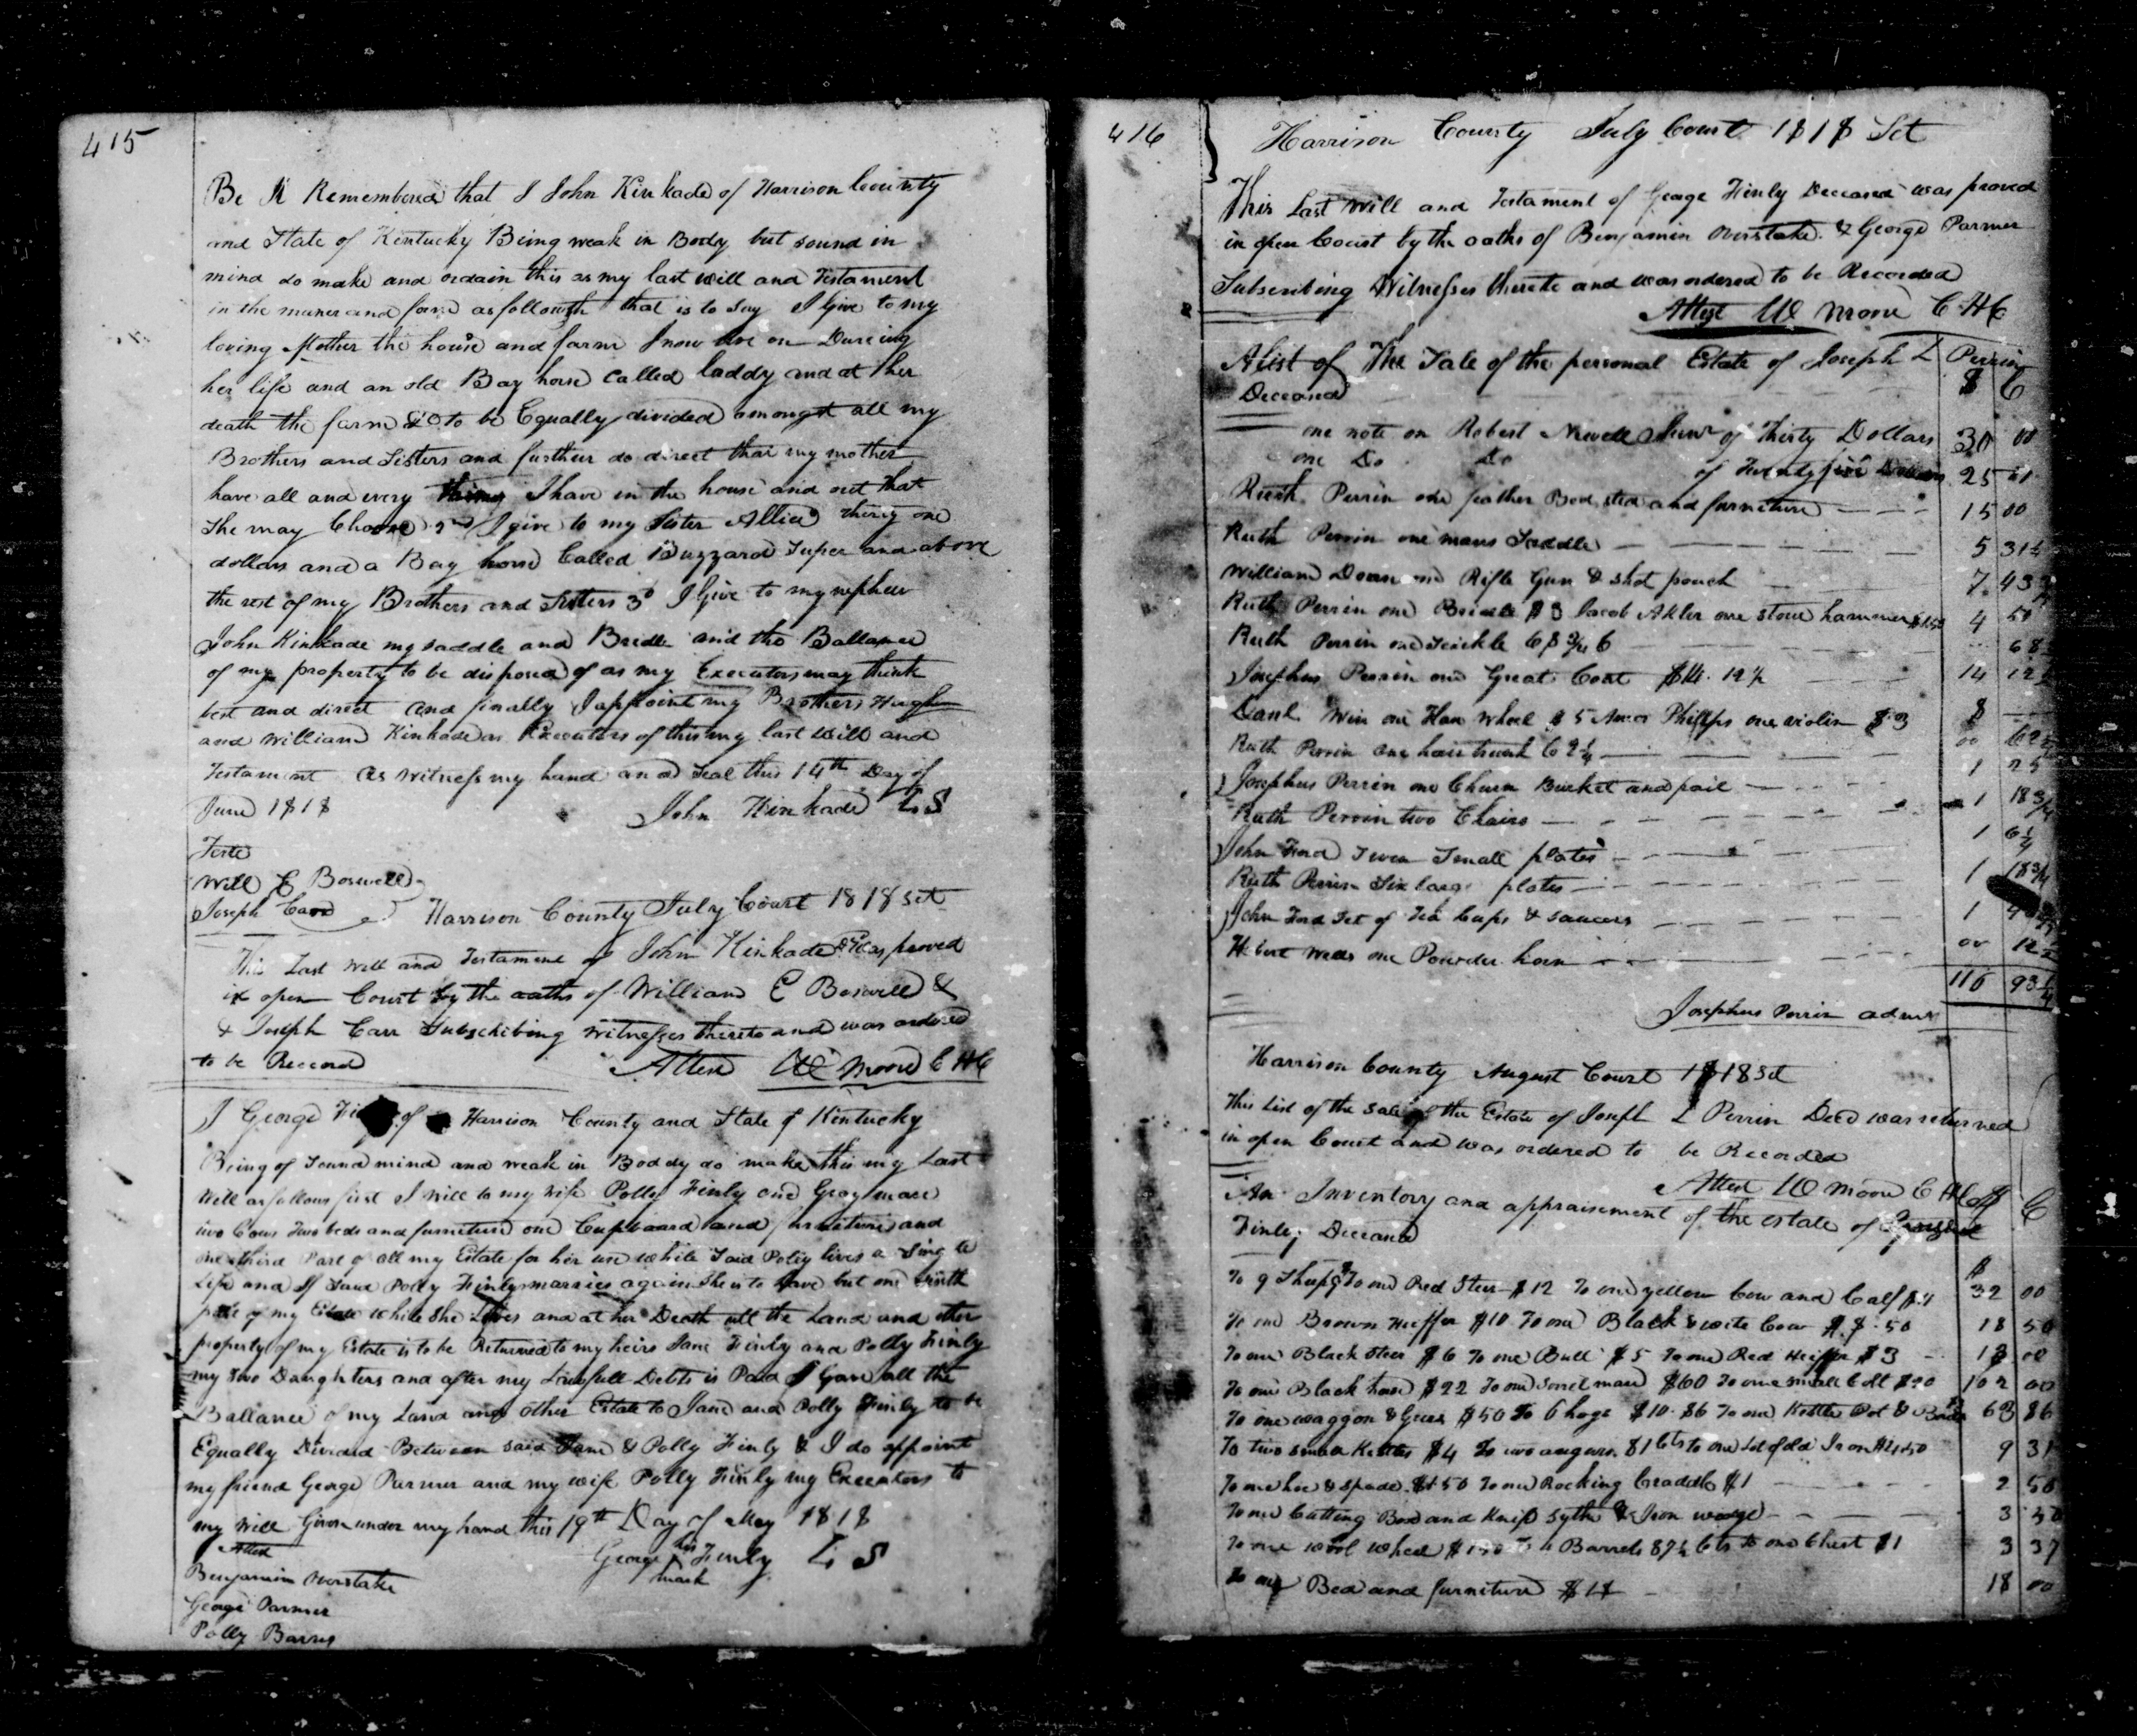 415
Be It Remembered that I John Kinkade of Harrison County
and State of Kentucky Being weak in Body but sound in
mind do make and ordain this as my last will and Testament
in the maner and form as followeth that is to say I Give to my
loving Mother the house and farm I now live on Dureing
her life and an old Bay horse Called laddy and at her
death the farm &c to be Equally divided amongst all my
Brothers and Sisters and further do direct that my mother
have all and every things I have in the house and out that
She may Choose 2nd I give to my Sister Allice thirty one
dollars and a Bay horse Called Buzzard Super and above
the rest of my Brothers and Sisters 3d I Give to my nephew
John Kinkade my saddle and Bridle and the Ballance
of my property to be disposed of as my Executors may think
best and direct and finally I appoint my Brothers Hugh
and William Kinkade as Executors of this my last will and
Testament As Witness my hand and Seal this 14th Day of
June 1818 John Kinkade LS
Teste
Will E Boswell
Joseph Carr
Harrison County July Court 1818 Sct
This Last Will and Testament of John Kinkade Decd was proved
in open Court by the oaths of William E Boswell &
& Joseph Carr Subschibing Witnesses thereto and was ordered
to be Record Attest W Moore C H C
I George of Harrison County and State of Kentucky
Being of Sound mind and weak in Boddy do make this my Last
Will as follows first I Will to my wife Polly Finly one Gray mare
two Cows Two beds and furniture one Cupboard and furniture and
one third Part of all my Estate for her use while Said Polly lives a Single
Life and If Said Polly Finly marries again She is to have but one
part of my Estate while She Lives and at her Death all the Land and other
property of my Estate is to be Returned to my heirs Jane Finly and Polly Finly
my two Daughters and after my Lawfull Debts is Paid I Gave all the
Ballance of my Land and other Estate to Jane and Polly Finly to be
Equally Devided Between said Jane & Polly Finly & I do appoint
my friend George Parmer and my wife Polly Finly my Executors to
my Will Given under my hand this 19th Day of May 1818
Attest George his Finly LS
mark
Benjamin Overstake
George Parmer
Polly Barns
416
Harrison County July Court 1818 Sct
This Last Will and Testament of George Finly Deceased was proved
in open Court by the oaths of Benjamin Overstake & George Parmer
Subscribing Witnesses thereto and was ordered to be Recorded
Attest W Moore C H C
A list of The Sale of the personal Estate of Joseph L Perrin
Deceased $ C
one note on Robert Newell Senr of Thirty Dollars 30 00
one Do Do of Twenty five Dollars 25 00
Ruth Perrin one feather Bed sted and furniture 15 00
Ruth Perrin one mans Saddle 5 31¼
William Doan one Rifle Gun & shot pouch 7 43¾
Ruth Perrin one Bridle $3 Jacob Akler one stone hammer $1.50 4 50
Ruth Perrin one Scickle 68¾ 68
Josephus Perrin one Great Coat $14.12½ 14 12½
Danl Win one Haw wheel $5 Amos Phillps one violin $3 8
Ruth Perrin one hair trunk 62½ 00 62½
Josephus Perrin one Churn Bucket and pail 1 25
Ruth Perrin two Chairs 1 18¾
John Ford Seven Small plates 1 6¼
Ruth Perrin Six large plates 1 18¾
John Ford Set of Tea Cups & saucers 1
one Powder horn 00 12½
116 93¼
Josephus Perrin admr
Harrison County August Court 1818 Sct
This List of the Sale of the Estate of Joseph L Perrin Decd was returned
in open Court and was ordered to be Recorded
Attest W Moore C H C
An Inventory and appraisement of the estate of George $ C
Finley Deceased
To 9 Sheep $9 To one Red Steer $12 To one yellow Cow and Calf $11 32 00
To one Brown Heiffer $10 To one Black & wite Cow $8.50 18 50
To one Black Steer $6 To one Bull $5 To one Red Heiffer $3 13 00
To one Black horse $22 To one Sorrel mare $60 To one small Colt $20 102 00
To one waggon & Gears $50 To 6 hogs $10.86 To one Kettle Pot & 63 86
To two small Kettles $4 To two augurs $1 Cts to one Lot of old Iron $4.50 9 31
To one hoe & Spade $1.50 To one Rocking Craddle $1 2 50
To one Cutting Box and Knife Sythe & Iron wedge 3 50
To one wool wheel $1.50 To 4 Barrels 87½ Cts To one Chest $1 3 37
To one Bed and furniture $18 18 00